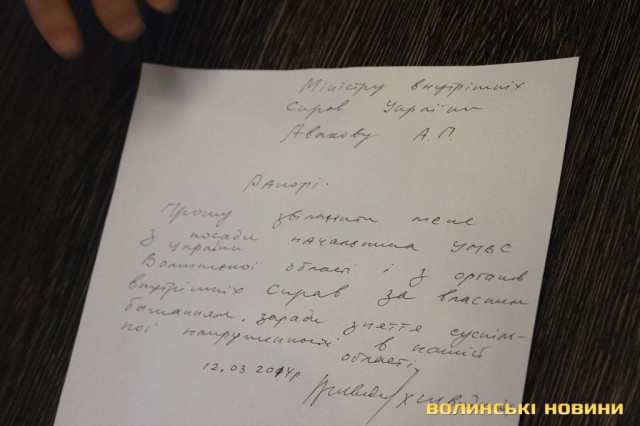 Міністру внутрішніх
справ України
Авакову А.П.
Рапорт.
Прошу звільнити мене
з посади начальника УМВС
України
Волинської області і з органів
внутрішніх справ за власним
бажанням, заради зняття суспіль-
ної напруженності в нашій
області.
12.03.2014р
ВОЛИНСЬКІ НОВИНИ